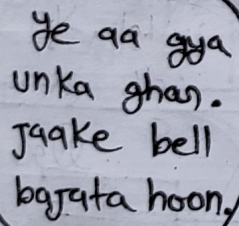 ye aa gya
unka ghar.
Jaake bell
bajata hoon.